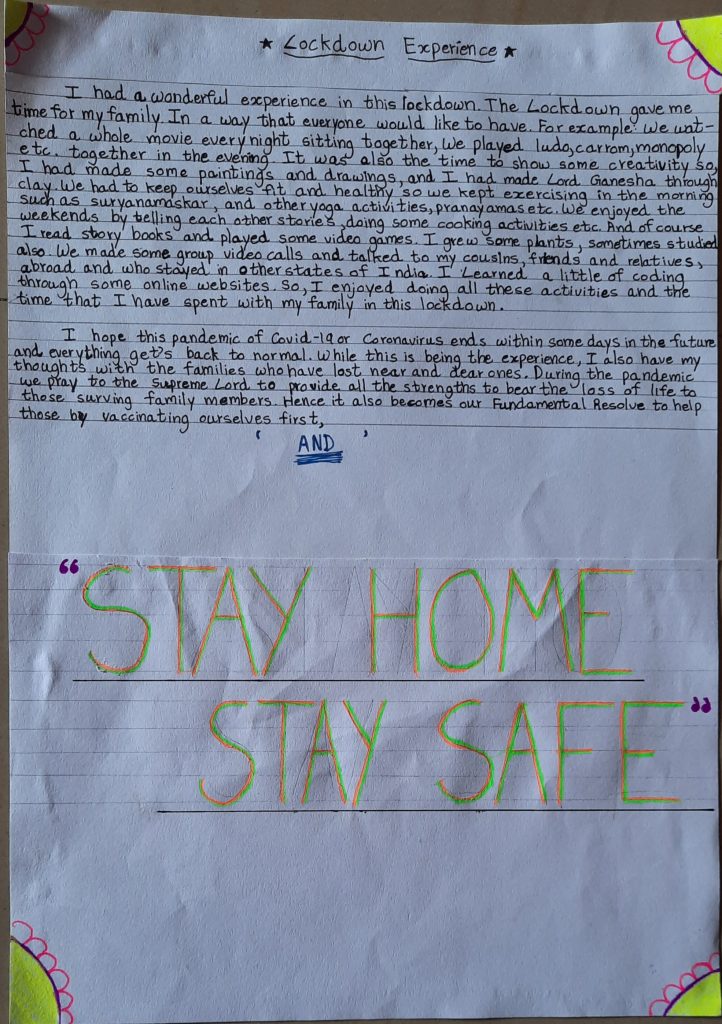 ★ Lockdown Experience ★
I had a wonderful experience in this lockdown. The Lockdown gave me
time for my family. In a way that everyone would like to have. For example: We wat-
ched a whole movie every night sitting together, We played ludo, carrom, monopoly
etc. together in the evening. It was also the time to show some creativity so,
I had made some paintings and drawings, and I had made Lord Ganesha through
clay. We had to keep ourselves fit and healthy so we kept exercising in the morning
such as suryanamaskar, and other yoga activities, pranayamas etc. We enjoyed the
weekends by telling each other stories, doing some cooking activities etc. And of course
I read story books and played some video games. I grew some plants, sometimes studied
also. We made some group video calls and talked to my cousins, friends and relatives,
abroad and who stayed in other states of India. I Learned a little of coding
through some online websites. So, I enjoyed doing all these activities and the
time that I have spent with my family in this lockdown.
I hope this pandemic of Covid-19 or Coronavirus ends within some days in the future
and everything get's back to normal. While this is being the experience, I also have my
thoughts with the families who have lost near and dear ones. During the pandemic
we pray to the Supreme Lord to provide all the strengths to bear the loss of life to
those surving family members. Hence it also becomes our Fundamental Resolve to help
those by vaccinating ourselves first,
' AND '
“STAY HOME
STAY SAFE”